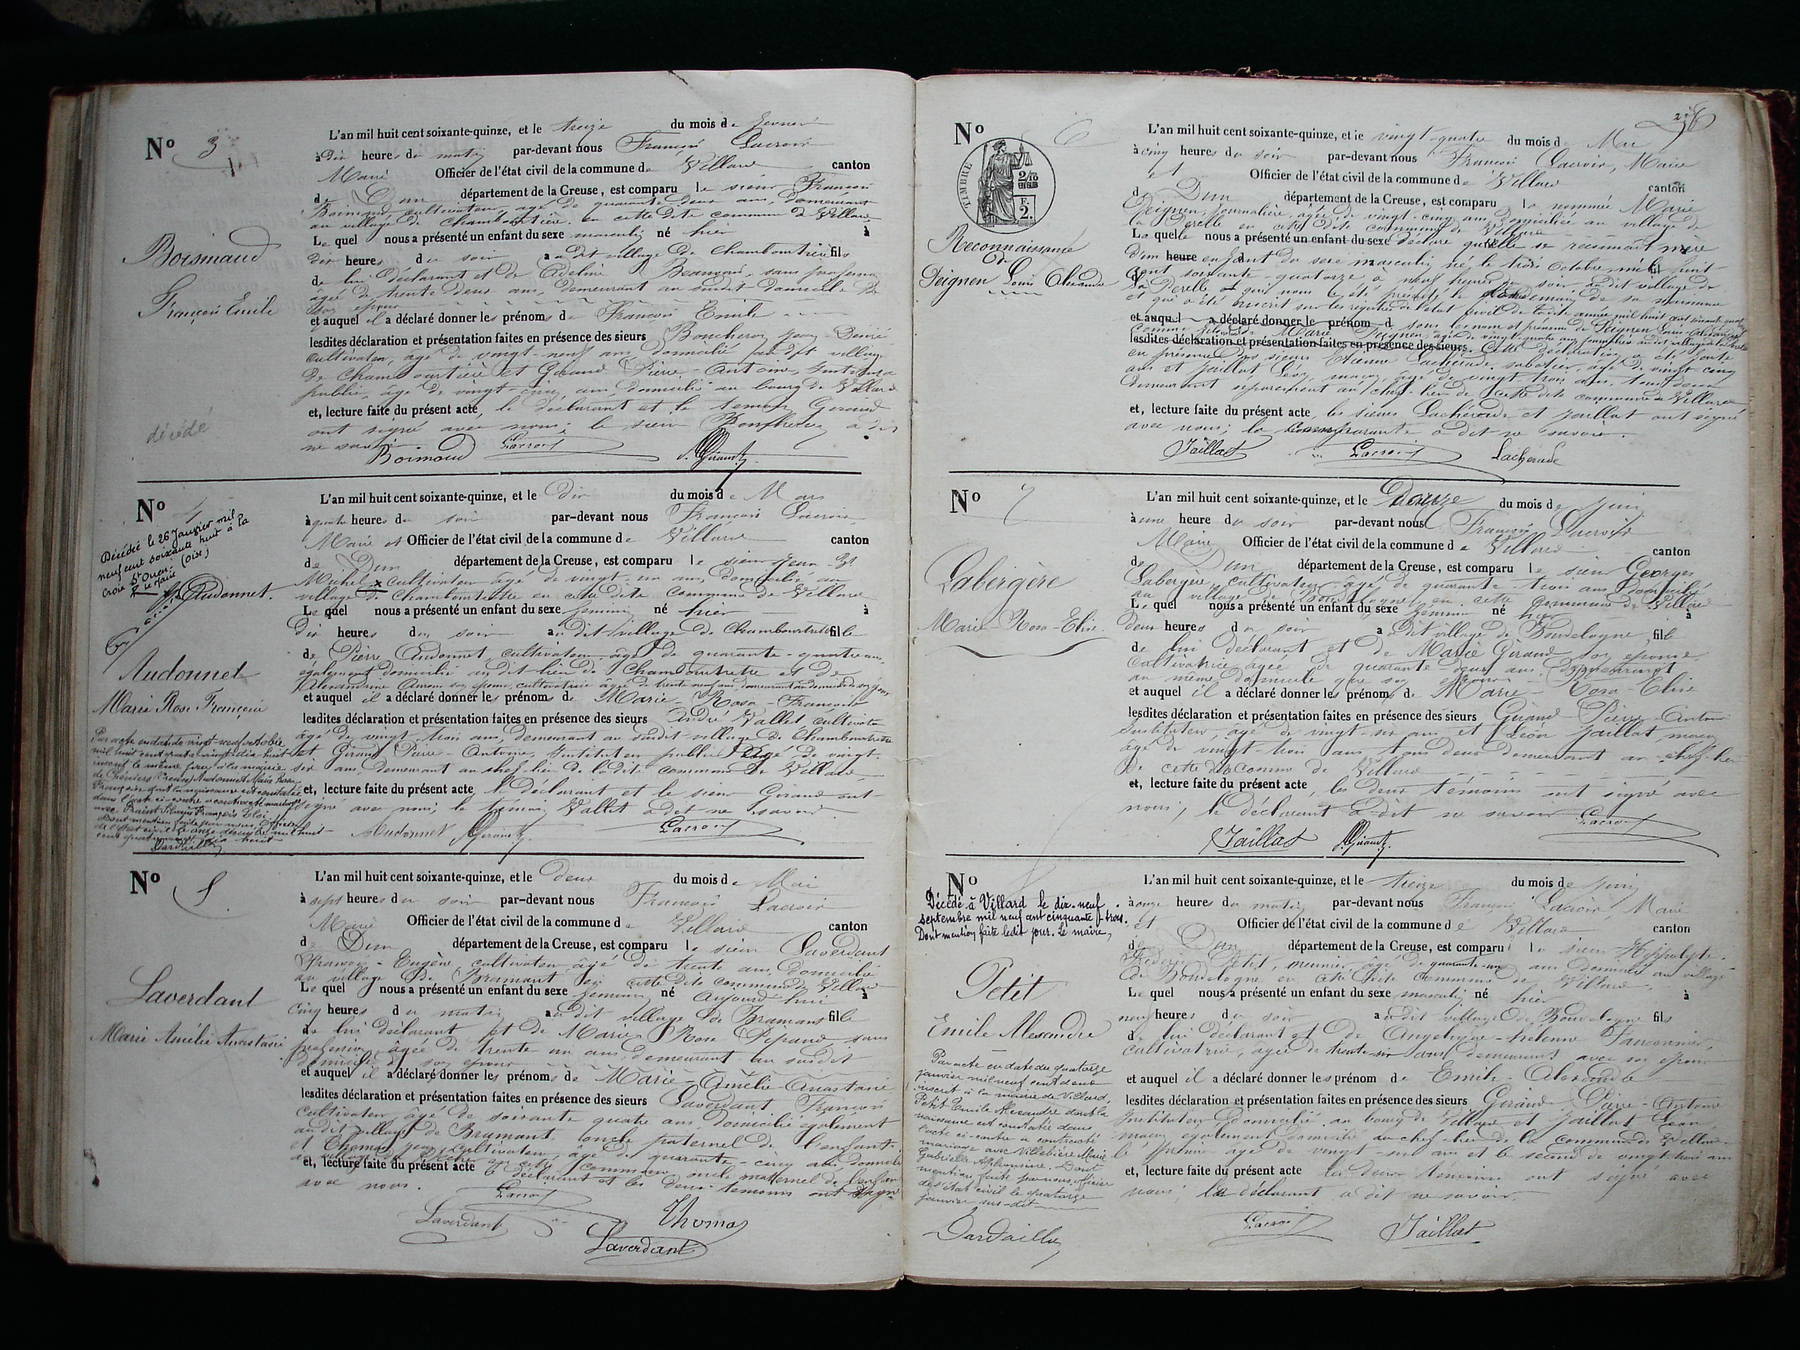 No 3
Boismaud
François Emile
décédé
L'an mil huit cent soixante-quinze, et le treize du mois de janvier
à dix heures du matin par-devant nous François Lacroix
Maire Officier de l'état civil de la commune de Villard canton
de Dun département de la Creuse, est comparu le sieur François
Boismaud, cultivateur, âgé de quarante deux ans, demeurant
au village de Chambourtière en cette dite commune de Villard
Le quel nous a présenté un enfant du sexe masculin né hier à
dix heures du soir au dit village de Chambourtière fils
de lui déclarant et de Adeline Beaufrère, sans profession
âgée de trente deux ans, demeurant au susdit domicile de
son époux
et auquel il a déclaré donner les prénoms de François Emile
lesdites déclaration et présentation faites en présence des sieurs Boucheron
cultivateur, âgé de vingt-neuf ans domicilié au dit village
de Chambourtière et Giraud Pierre-Antoine, instituteur
public, âgé de vingt-six ans, domicilié au bourg de Villard
et, lecture faite du présent acte, le déclarant et le témoin Giraud
ont signé avec nous; le sieur a dit
ne savoir.
Boismaud Lacroix P. Giraud
No 4
Décédée le 26 Janvier mil
neuf cent soixante huit à la
Croix St Ouen (Oise)
P. le Maire
Audonnet.
Audonnet
Marie Rose Françoise
Par acte en date du vingt neuf octobre
mil huit cent quatre vingt dix huit
inscrit le même jour à la mairie
de Chéniers (Creuse) Audonnet Marie Rose
Françoise dont la naissance est constatée
dans l'acte ci-contre a contracté mariage
avec François Eloi
Dont mention faite par nous Officier
de l'Etat civil le onze décembre mil huit
cent quatre vingt dix huit
Dardaillon
L'an mil huit cent soixante-quinze, et le dix du mois de Mars
à quatre heures du soir par-devant nous François Lacroix
Maire et Officier de l'état civil de la commune de Villard canton
de Dun département de la Creuse, est comparu le sieur Jean Bte
Michel cultivateur âgé de vingt-un ans, domicilié au
village de Chambourtrette en cette dite commune de Villard
Le quel nous a présenté un enfant du sexe féminin né hier à
dix heures du soir au dit village de Chambourtrette fille
de Pierre Audonnet, cultivateur, âgé de quarante-quatre ans,
également domicilié au dit lieu de Chambourtrette et de
Alexandrine son épouse, cultivatrice âgée de trente neuf ans, demeurant au domicile de son époux
et auquel il a déclaré donner les prénoms de Marie-Rose-Françoise
lesdites déclaration et présentation faites en présence des sieurs André Vallet cultivateur
âgé de vingt-trois ans, demeurant au susdit village de Chambourtrette
et Giraud Pierre-Antoine, instituteur public âgé de vingt-
six ans, demeurant au chef lieu de la dite commune de Villard
et, lecture faite du présent acte, le déclarant et le sieur Giraud ont
signé avec nous; le témoin Vallet a dit ne savoir.
Audonnet Giraud Lacroix
No 5
Laverdant
Marie Amélie Anastasie
L'an mil huit cent soixante-quinze, et le deux du mois de Mai
à sept heures du soir par-devant nous François Lacroix
Maire Officier de l'état civil de la commune de Villard canton
de Dun département de la Creuse, est comparu le sieur Laverdant
François-Eugène cultivateur âgé de trente ans, domicilié
au village de Bramant en cette dite commune de Villard
Le quel nous a présenté un enfant du sexe féminin né aujourd'hui à
cinq heures du matin au dit village de Bramant fille
de lui déclarant et de Marie Rose Depaud, sans
profession, âgée de trente un ans, demeurant au susdit
domicile de son époux
et auquel il a déclaré donner les prénoms de Marie-Amélie-Anastasie
lesdites déclaration et présentation faites en présence des sieurs Laverdant François
cultivateur âgé de soixante quatre ans, domicilié également
au dit village de Bramant, oncle paternel de l'enfant
et Thomas Jean cultivateur, âgé de quarante-cinq ans domicilié
commune, oncle maternel de l'enfant
et, lecture faite du présent acte le déclarant et les deux témoins ont signé
avec nous.
Lacroix
Laverdant Thomas
Laverdant
28
No 6
TIMBRE
2/10
EN SUS
F.
2.
Reconnaissance
de
Peignen Louis Alexandre
L'an mil huit cent soixante-quinze, et le vingt-quatre du mois de Mai
à cinq heures du soir par-devant nous François Lacroix, Maire
et Officier de l'état civil de la commune de Villard canton
de Dun département de la Creuse, est comparu la nommée Marie
Peignen, journalière, âgée de vingt-cinq ans, domiciliée au village de
la Perelle en cette dite commune de Villard
Le quelle nous a présenté un enfant du sexe déclare qu'elle se reconnaît mère
d'un enfant du sexe masculin, né le trois Octobre, mil huit
cent soixante quatorze à neuf heures du soir au dit village de
la Perelle qui nous a été présenté le lendemain de sa naissance
et qui a été inscrit sur les registres de l'état civil de ladite année mil huit cent soixante quatorze
et auquel a déclaré donner le prénom d sous les nom et prénoms de Peignen Louis-Alexandre
comme fils de Marie Peignen
lesdites déclaration et présentation faites en présence des sieurs Cette déclaration a été faite
en présence des sieurs Etienne Lacherade, sabotier, âgé de vingt cinq
ans et Jaillat Léon, maçon, âgé de vingt trois ans, tous deux
demeurant séparément au chef-lieu de cette dite commune de Villard
et, lecture faite du présent acte, les sieurs Lacherade et Jaillat ont signé
avec nous; la comparante a dit ne savoir.
Jaillat Lacroix Lacherade
No 7
Labergère
Marie-Rosa-Elise
L'an mil huit cent soixante-quinze, et le Douze du mois de juin
à une heure du soir par-devant nous François Lacroix
Maire Officier de l'état civil de la commune de Villard canton
de Dun département de la Creuse, est comparu le sieur Georges
Labergère, cultivateur, âgé de quarante-trois ans, domicilié
au village de Boudologne, en cette commune de Villard
Le quel nous a présenté un enfant du sexe féminin né hier à
deux heures du soir au dit village de Boudologne, fille
de lui déclarant et de Marie Giraud, son épouse
cultivatrice, âgée de quarante deux ans demeurant
au même domicile que son époux
et auquel il a déclaré donner les prénoms de Marie-Rosa-Elise
lesdites déclaration et présentation faites en présence des sieurs Giraud Pierre-Antoine
instituteur, âgé de vingt-six ans et Léon Jaillat maçon
âgé de vingt-trois ans, tous deux demeurant au chef-lieu
de cette dite commune de Villard
et, lecture faite du présent acte, les deux témoins ont signé avec
nous; le déclarant a dit ne savoir.
Lacroix
Jaillat P. Giraud
No 8
Décédé à Villard le dix-neuf
septembre mil neuf cent cinquante-trois.
Dont mention faite ledit jour. Le maire,
Petit
Emile Alexandre
Par acte en date du quatorze
janvier mil neuf cent deux
inscrit à la mairie de Villard,
Petit Emile Alexandre dont la
naissance est constatée dans
l'acte ci-contre a contracté
mariage avec Villebière Marie
Gabrielle Alphonsine. Dont
mention faite par nous officier
de l'état civil le quatorze
janvier sus-dit
Dardaillon
L'an mil huit cent soixante-quinze, et le treize du mois de juin
à onze heures du matin par-devant nous François Lacroix, Maire
et Officier de l'état civil de la commune de Villard canton
de Dun département de la Creuse, est comparu le sieur Hippolyte-
Frédéric Petit, meunier, âgé de quarante-un ans demeurant au village
de Boudologne en cette dite commune de Villard
Le quel nous a présenté un enfant du sexe masculin né hier à
neuf heures du soir au dit village de Boudologne fils
de lui déclarant et de Angélique-Hélène Fanconnier,
cultivatrice, âgée de trente-six ans demeurant avec son époux
et auquel il a déclaré donner les prénom de Emile-Alexandre
lesdites déclaration et présentation faites en présence des sieurs Giraud-Pierre-Antoine
instituteur domicilié au bourg de Villard et Jaillat Léon
maçon également domicilié au chef-lieu de la commune de Villard
le premier âgé de vingt-six ans et le second de vingt-trois ans
et, lecture faite du présent acte les deux témoins ont signé avec
nous; le déclarant a dit ne savoir.
Lacroix Jaillat